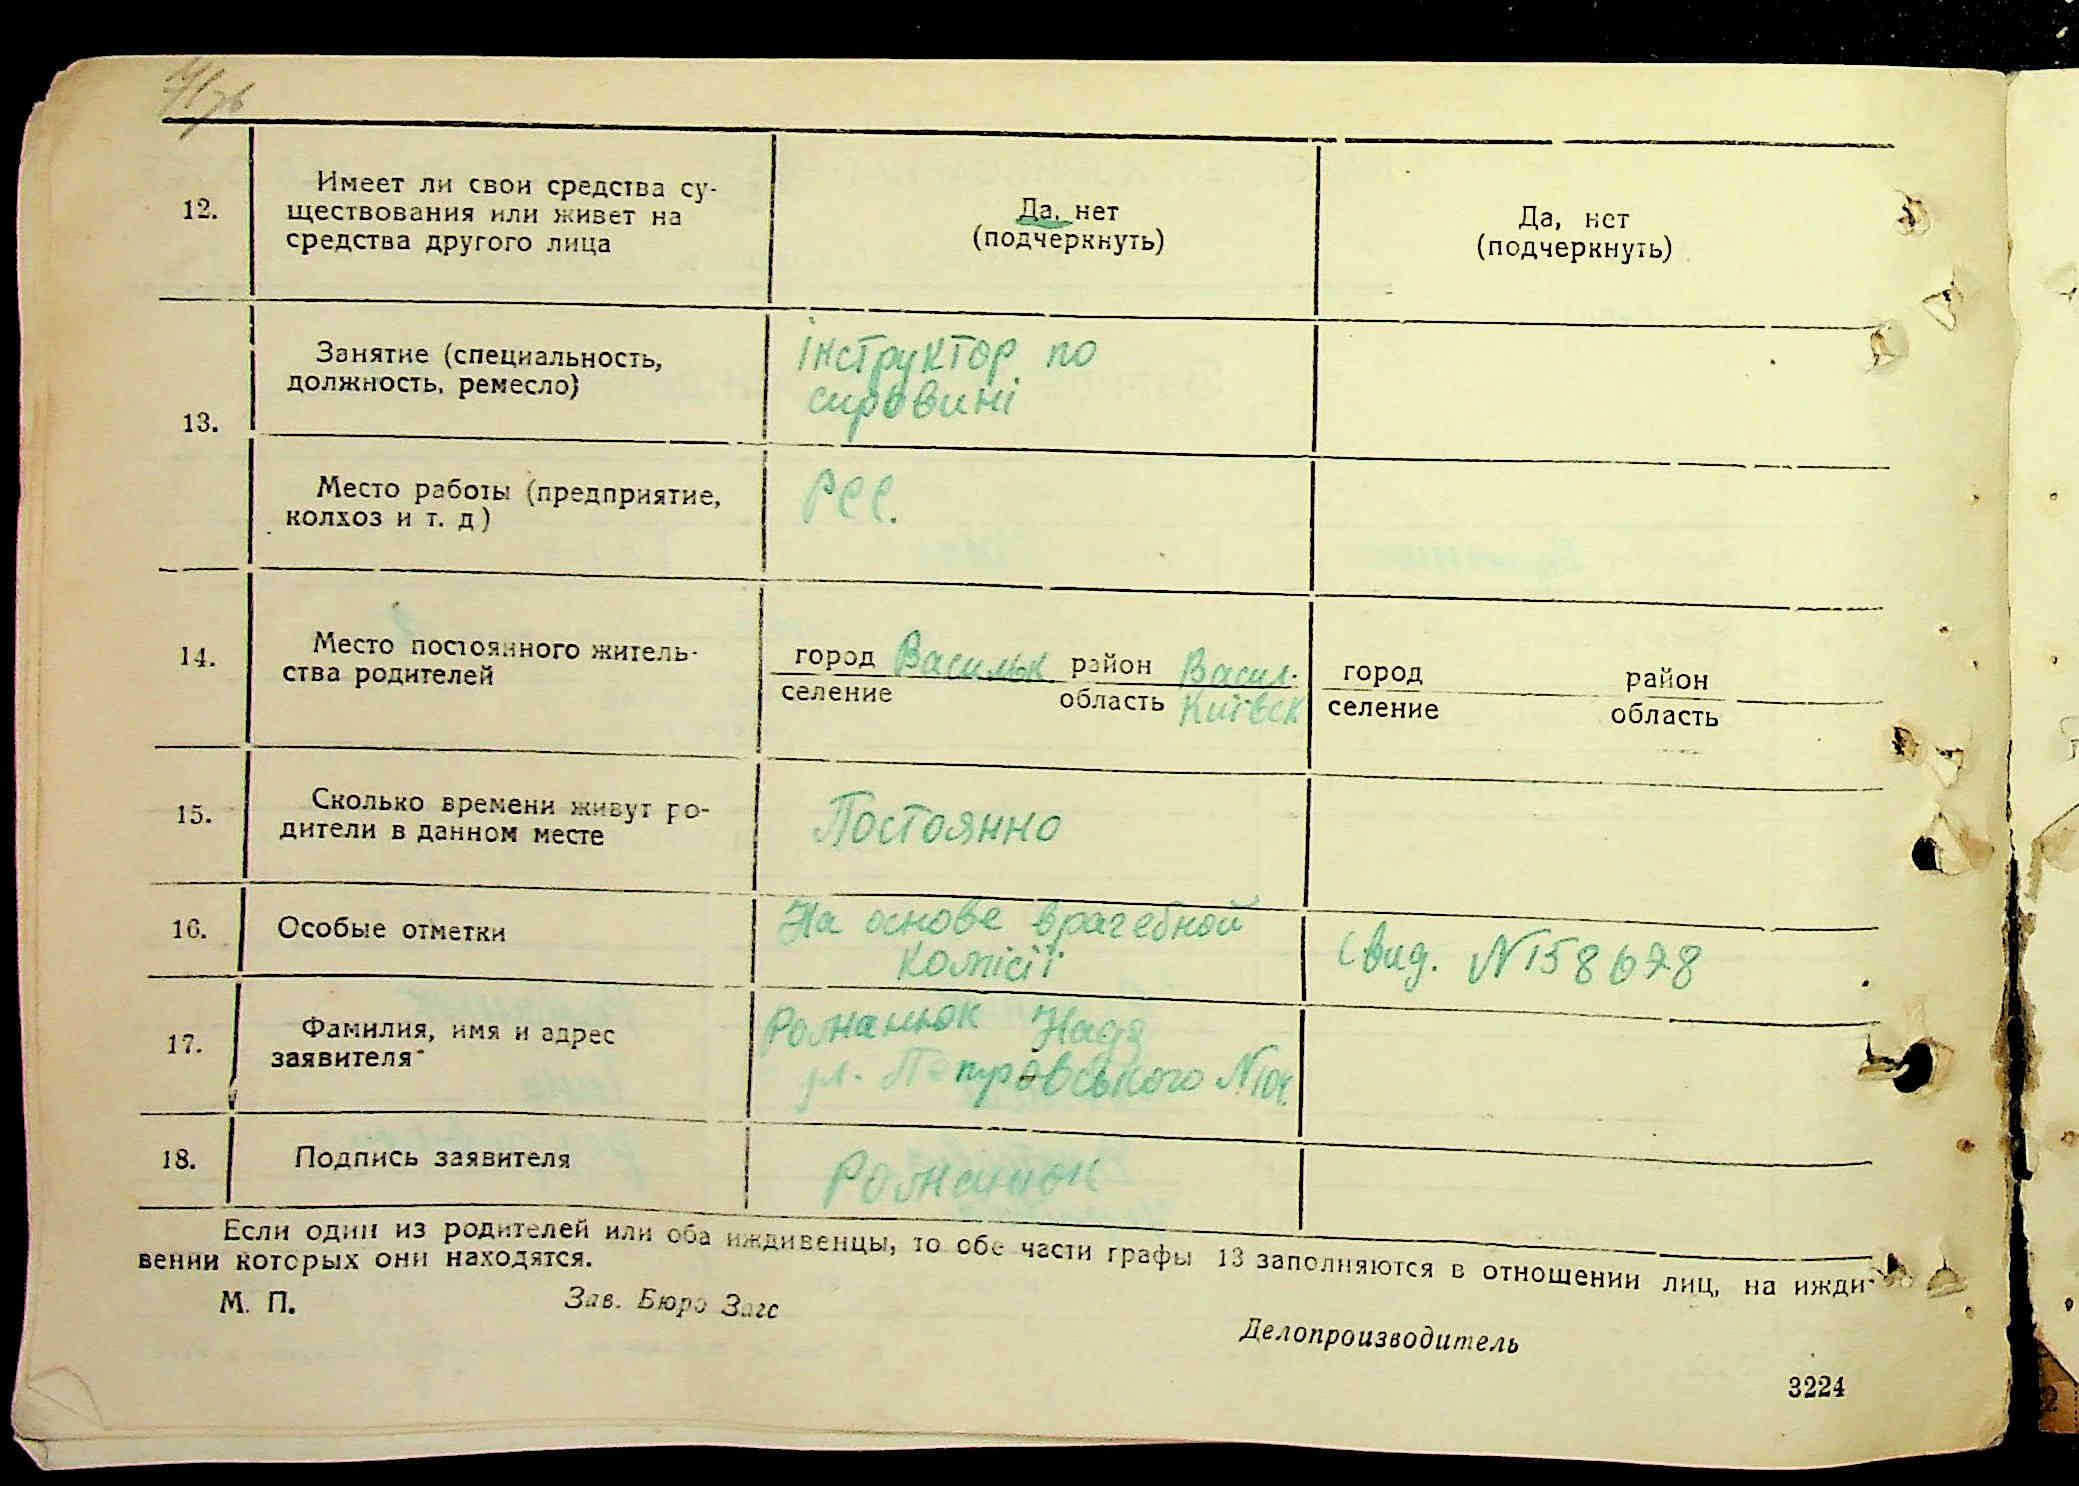 12.
Имеет ли свои средства су-
ществования или живет на
средства другого лица
Да, нет
(подчеркнуть)
Да, нет
(подчеркнуть)
13.
Занятие (специальность,
должность, ремесло)
інструктор по
сировині
Место работы (предприятие,
колхоз и т. д)
РСС.
14.
Место постоянного житель-
ства родителей
город Васильк. район Васил.
селение область Київск
город район
селение область
15.
Сколько времени живут ро-
дители в данном месте
Постоянно
16.
Особые отметки
На основе врачебной
комісії
Свид. № 158678
17.
Фамилия, имя и адрес
заявителя
Романюк Надя
ул. №104.
18.
Подпись заявителя
Романюк
Если один из родителей или оба иждивенцы, то обе части графы 13 заполняются в отношении лиц, на ижди-
вении которых они находятся.
М. П.
Зав. Бюро Загс
Делопроизводитель
3224